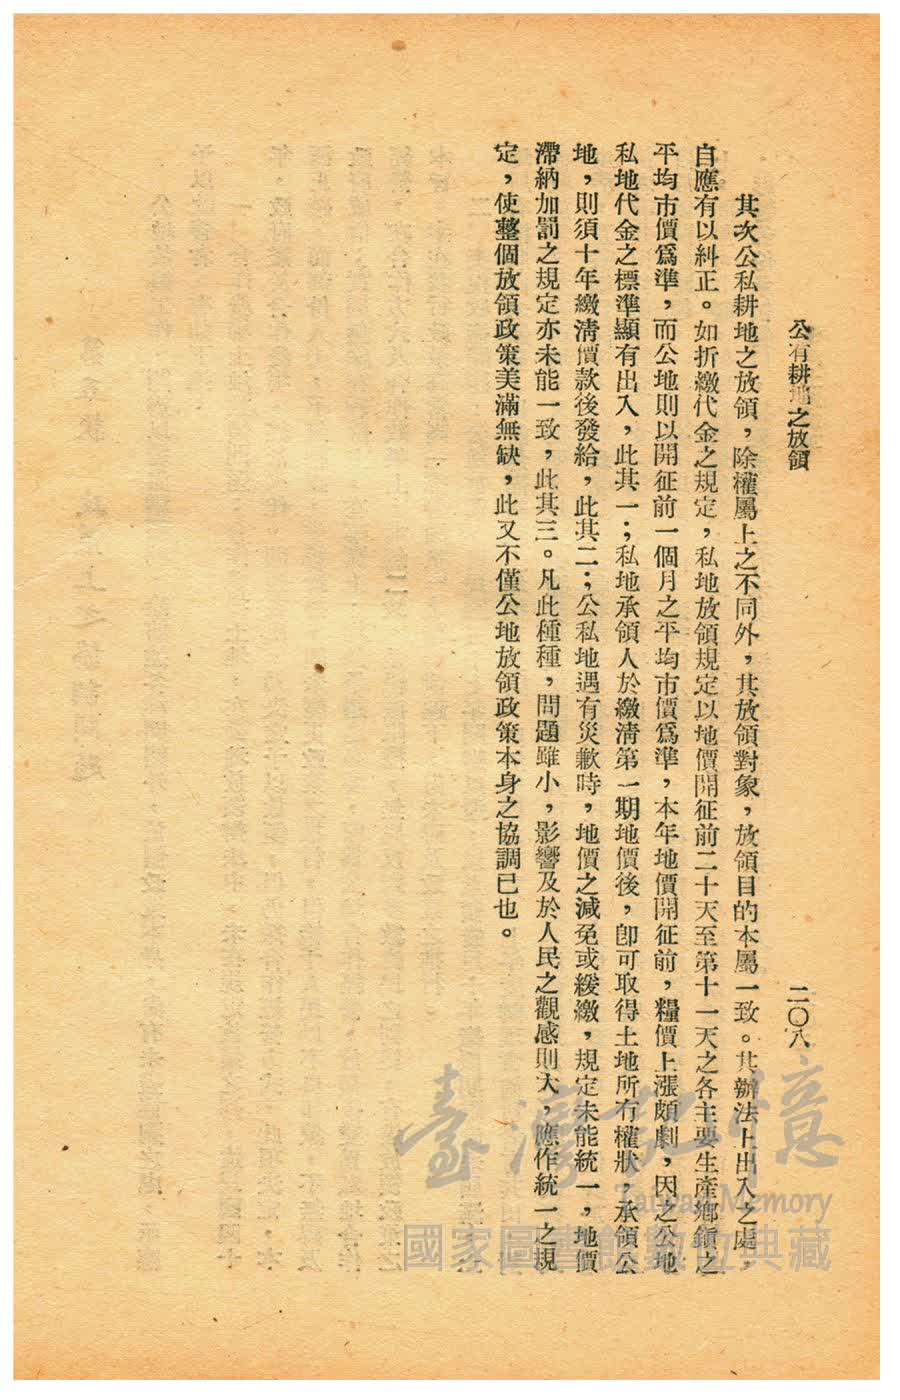 公有耕地之放領
二〇八
其次公私耕地之放領，除權屬上之不同外，其放領對象，放領目的本屬一致。其辦法上出入之處，
自應有以糾正。如折繳代金之規定，私地放領規定以地價開征前二十天至第十一天之各主要生產鄉鎮之
平均市價爲準，而公地則以開征前一個月之平均市價爲準，本年地價開征前，糧價上漲頗劇，因之公地
私地代金之標準顯有出入，此其一；私地承領人於繳清第一期地價後，卽可取得土地所有權狀，承領公
地，則須十年繳清價款後發給，此其二；公私地遇有災歉時，地價之減免或緩繳，規定未能統一，地價
滯納加罰之規定亦未能一致，此其三。凡此種種，問題雖小，影響及於人民之觀感則大，應作統一之規
定，使整個放領政策美滿無缺，此又不僅公地放領政策本身之協調已也。
臺灣記憶
Taiwan Memory
國家圖書館數位典藏